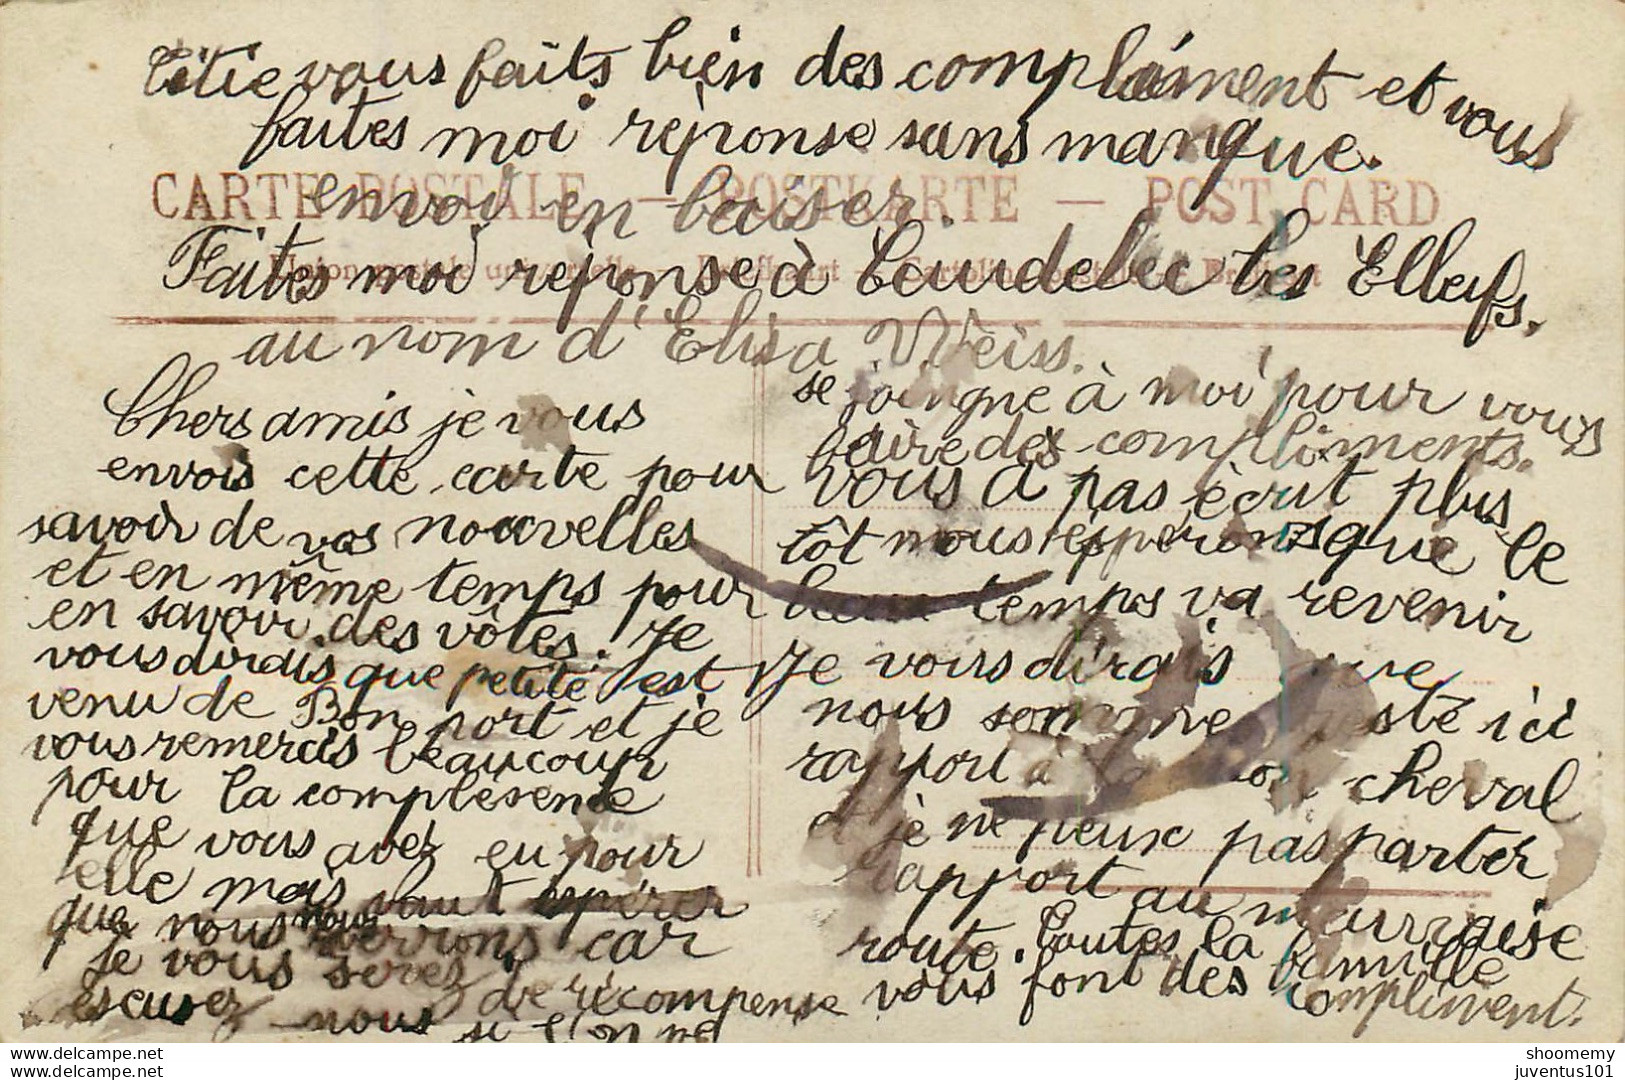 Titie vous faits bien des complément et vous
faites moi rèponse sans manque.
CARTE POSTALE — POSTKARTE — POST CARD
envoi en baiser.
Faites moi rèponse à
au nom d'Elisa Weiss.
Chers amis je vous
envois cette carte pour
savoir de vos nouvelles
et en même temps pour
en savoir des vôtes. Je
vous dirais que petite est
venu de Bon port et je
vous remercis beaucoup
pour la complésence
que vous avez eu pour
elle mais vaut espérer
que nous nous verrons car
je vous serez de récompense
escusez nous si l'on ne
se joingne à moi pour vous
faire des compliments.
vous a pas ècrit plus
tôt nous espèrons que le
beau temps va revenir
Je vous dirais que
nous somme resté ici
rapport à cheval
et je ne peux pas partir
rapport au mauvaise
route. Toutes la famille
vous font des compliment.
shoomemy
juventus101